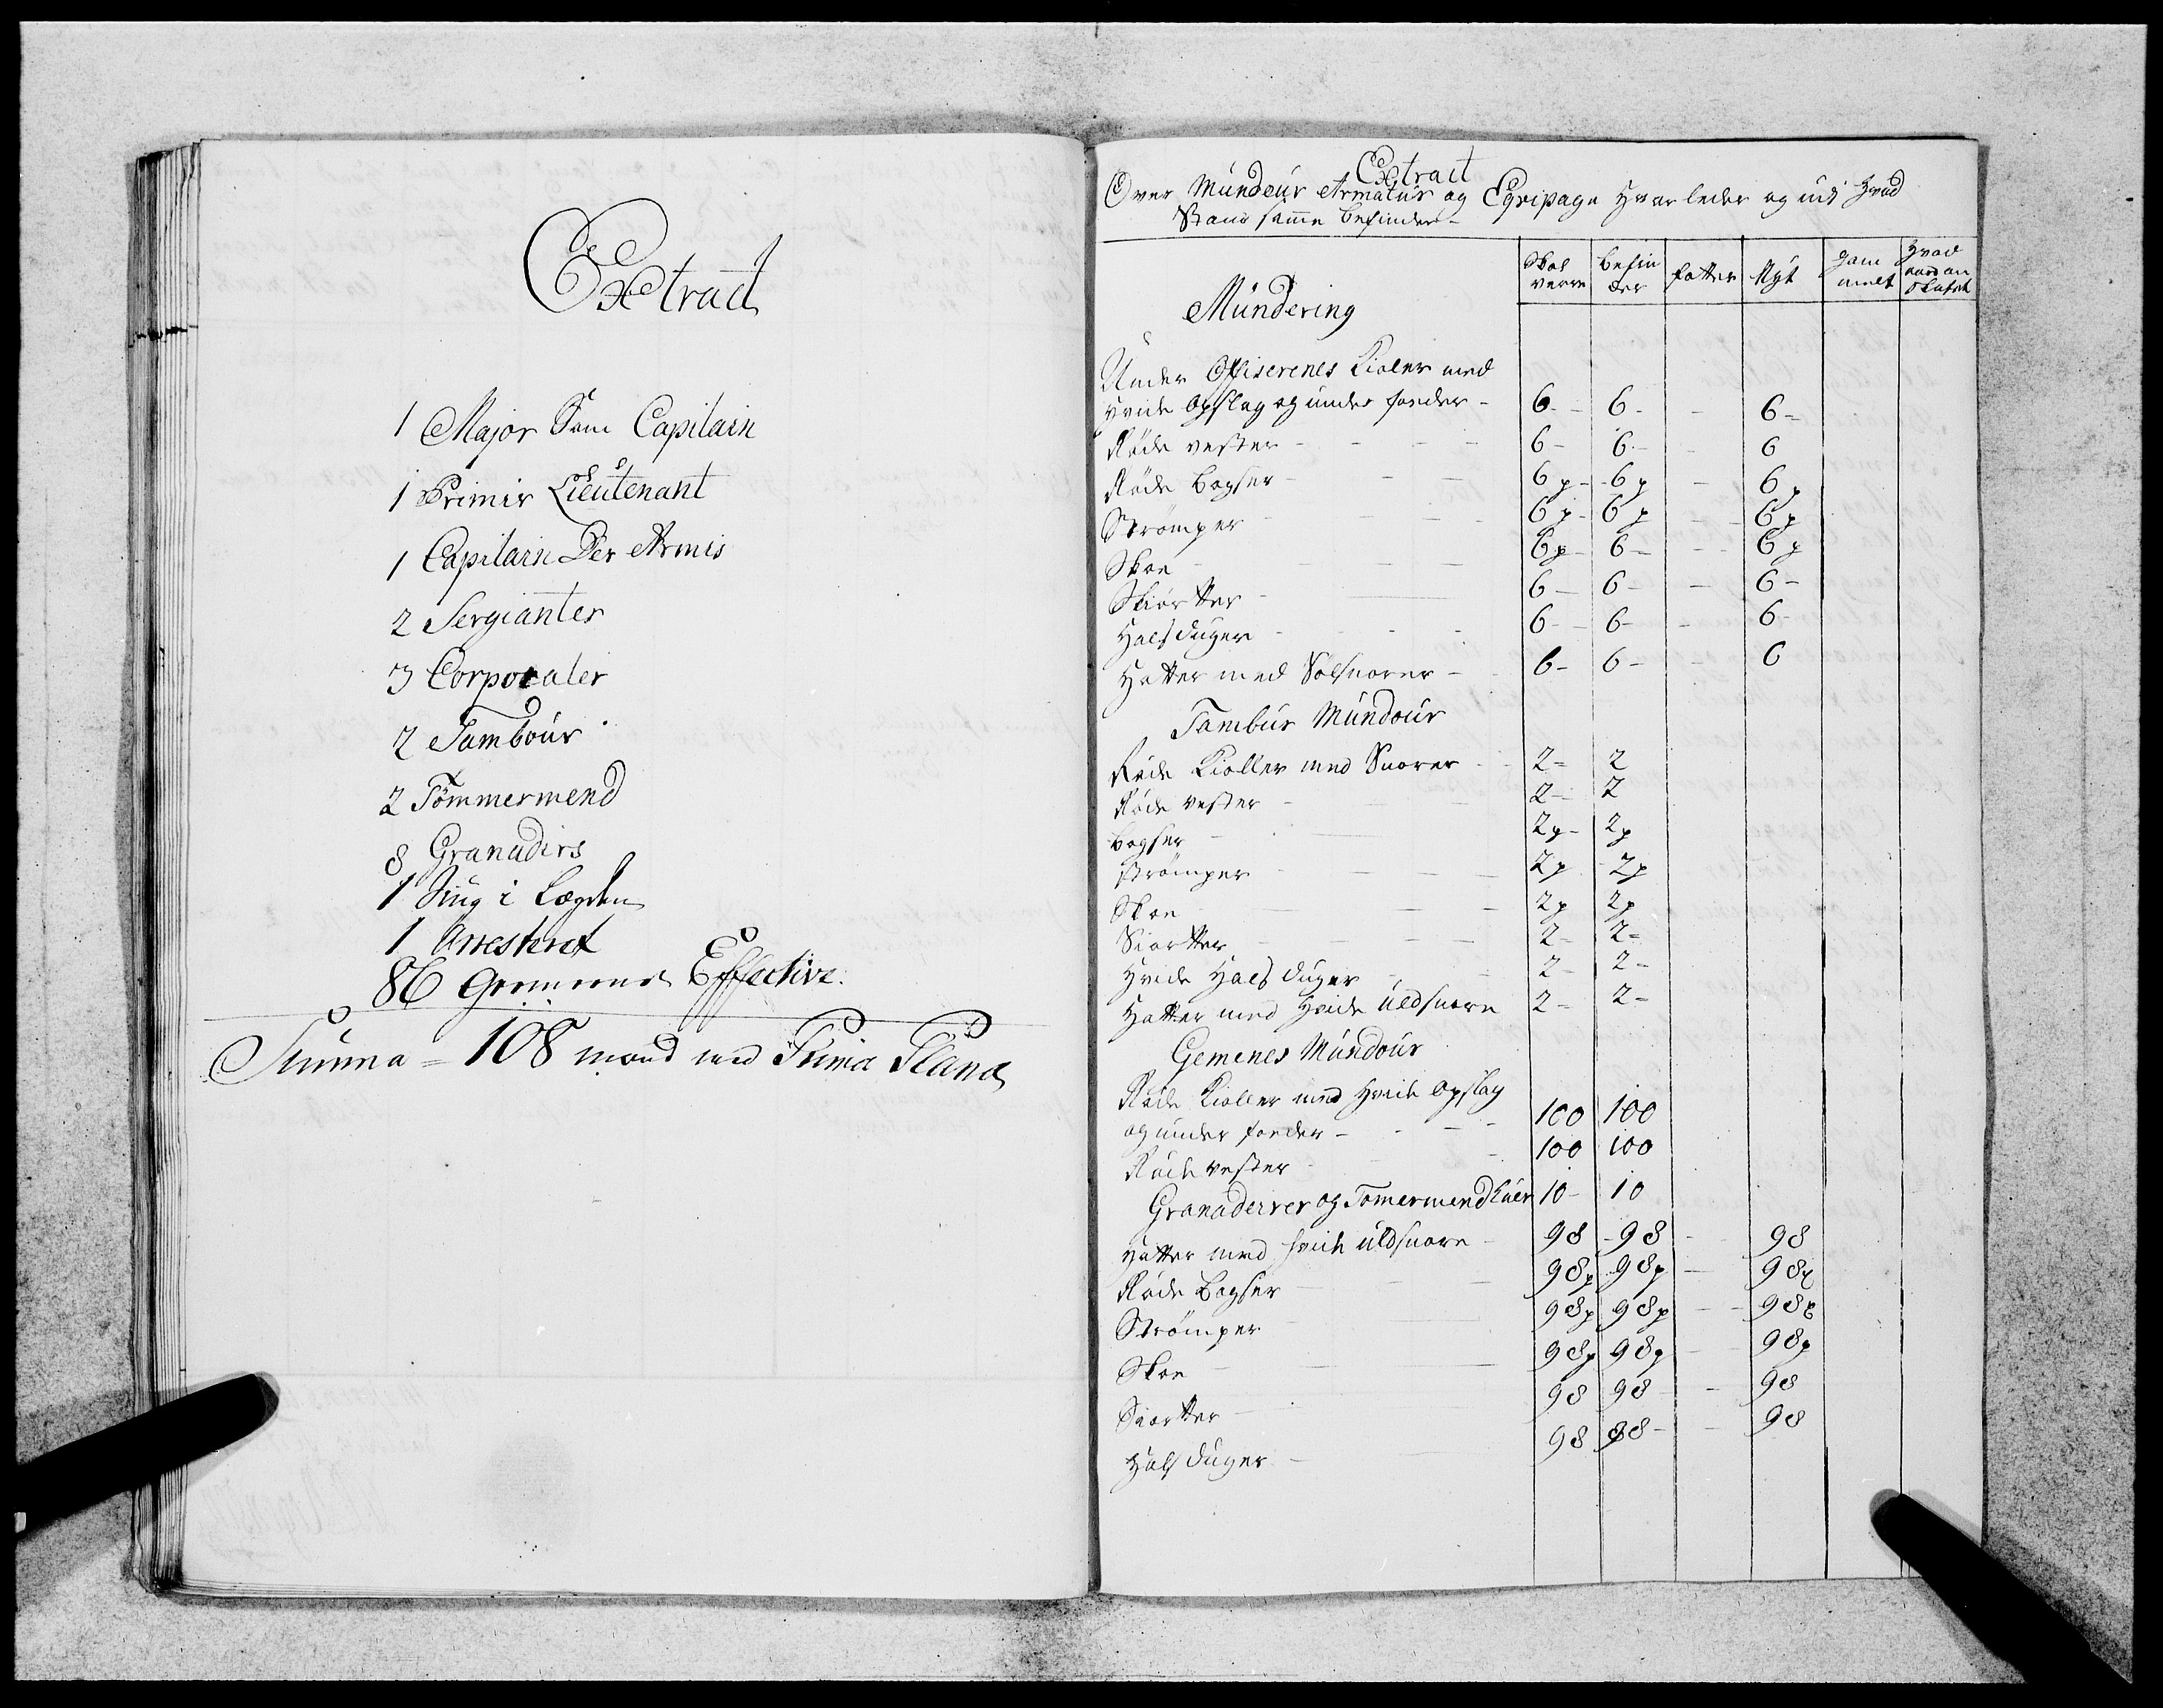 Extract
1 Major Som Capitain
1 Primir Lieutenant
1 Capitain Der Armis
2 Sergianter
3 Corporaler
2 Tambour
2 Tömmermend
8 Granadirs
1 Siug i Lægden
1 Arresteret
86 Gemeene Effective.
Summa = 108 mand med Prima Plana
Extract
Over Mundour Armatur og Eqvipage Hvorledes og udi Hvad
Stand samme befindes
Mundering
Skal være
befin des
fatter
Nyt
gam melt
Hvad aar an skafet
Under Officerenes Kioler med
hvide Opslag og under foeder - 6 - 6 - - 6 -
Røde vester - 6 - 6 - - 6
Røde Bogser - 6 p - 6 p - 6 p
Strømper - 6 p - 6 p - 6 p
Skoe - 6 p - 6 - - 6 p
Skiortter - 6 - 6 - - 6 -
Halsduger - 6 - 6 - - 6 -
Hatter med Sølsnorer - 6 - 6 - - 6
Tambur Mundour
Røde Kioller med Snorer - 2 - 2
Røde vester - 2 - 2
bogser - 2 p - 2 p
strømper - 2 p - 2 p
Skoe - 2 p 2 p
Siortter - 2 - 2 -
Hvide Hals duger - 2 - 2 -
Hatter med Hvide uldsnore 2 - 2 -
Gemenes Mundour
Røde Kioller med Hvide Opslag
og under foeder - 100 100
Røde vester - 100 100
Granaderer og Tomermend Luer 10 - 10
Hatter med hvide uldsnore - 98 - 98 - 98
Røde Bogser - 98 p 98 p - 98 p
Strømper - 98 p 98 p - 98 p
Skoe - 98 p 98 p - 98 p
Siortter - 98 98 - 98
Halsduger - 98 98 - - 98